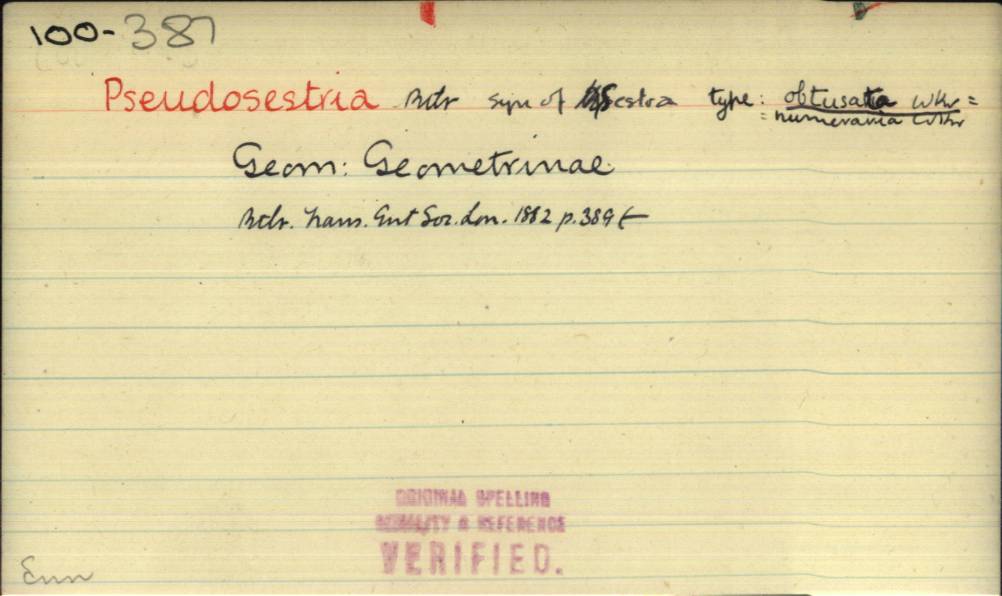 100-387
Pseudosestria Btlr syn of Sestra type: obtusata Wkr =
= numeraria Wkr
Geom: Geometrinae
Btlr. Trans. Ent Soc. Lon. 1882 p. 389 ←
ORIGINAL SPELLING
& REFERENCE
VERIFIED.
Enn